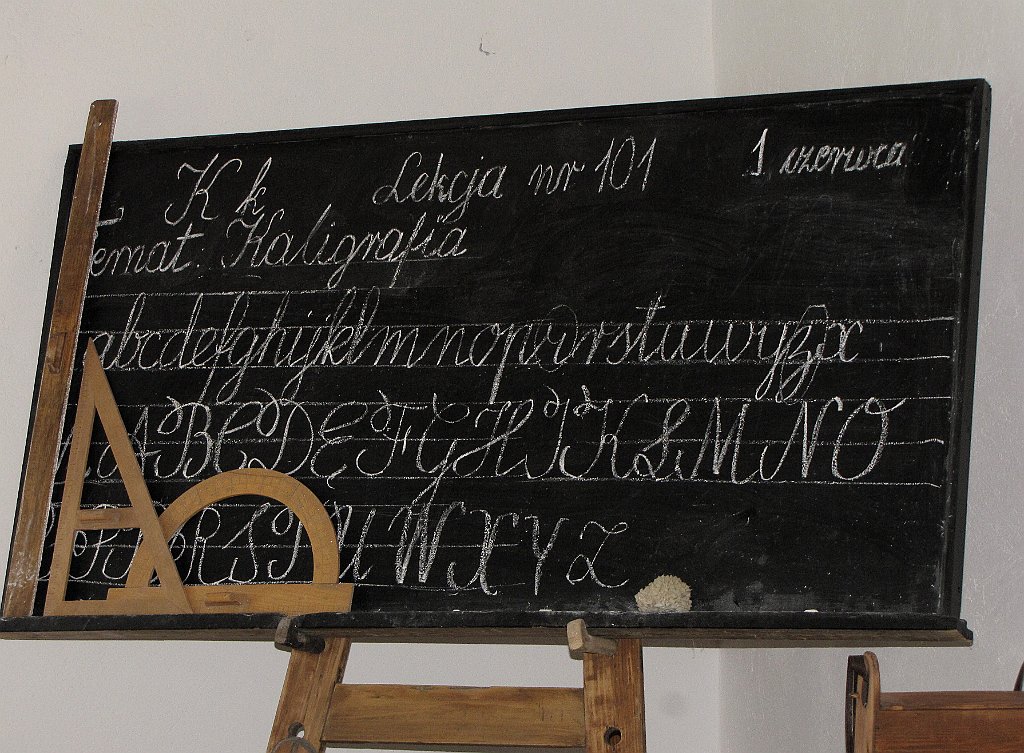 K k Lekcja nr 101 1 czerwca
Temat: Kaligrafia
abcdefghijklmnoprstuwyzx
ABCDEFGHIJKLMNO
PRSTUWXYZ